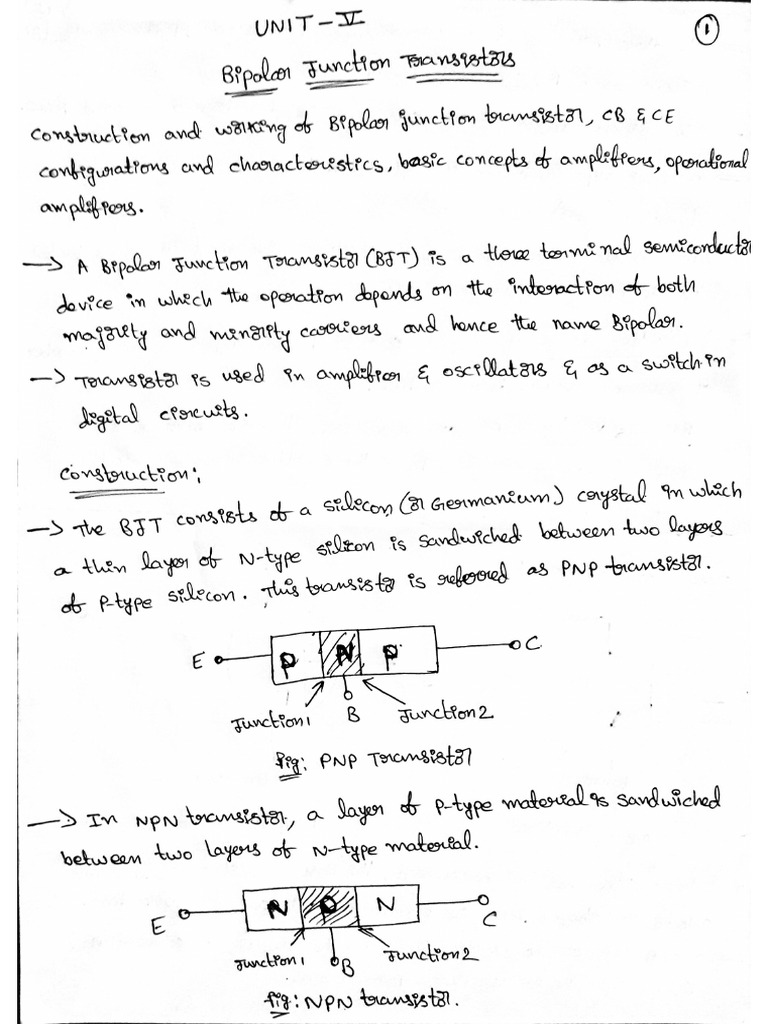 UNIT-V
1
Bipolar Junction Transistors
Construction and working of Bipolar junction transistor, CB & CE
configurations and characteristics, basic concepts of amplifiers, operational
amplifiers.
→ A Bipolar Junction Transistor (BJT) is a three terminal semiconductor
device in which the operation depends on the interaction of both
majority and minority carriers and hence the name Bipolar.
→ Transistor is used in amplifier & oscillators & as a switch in
digital circuits.
Construction:
→ The BJT consists of a silicon (or Germanium) crystal in which
a thin layer of N-type silicon is sandwiched between two layers
of P-type silicon. This transistor is referred as PNP transistor.
E P N P C
Junction1 B Junction2
fig: PNP Transistor
→ In NPN transistor, a layer of P-type material is sandwiched
between two layers of N-type material.
E N P N C
Junction1 B Junction2
fig: NPN transistor.